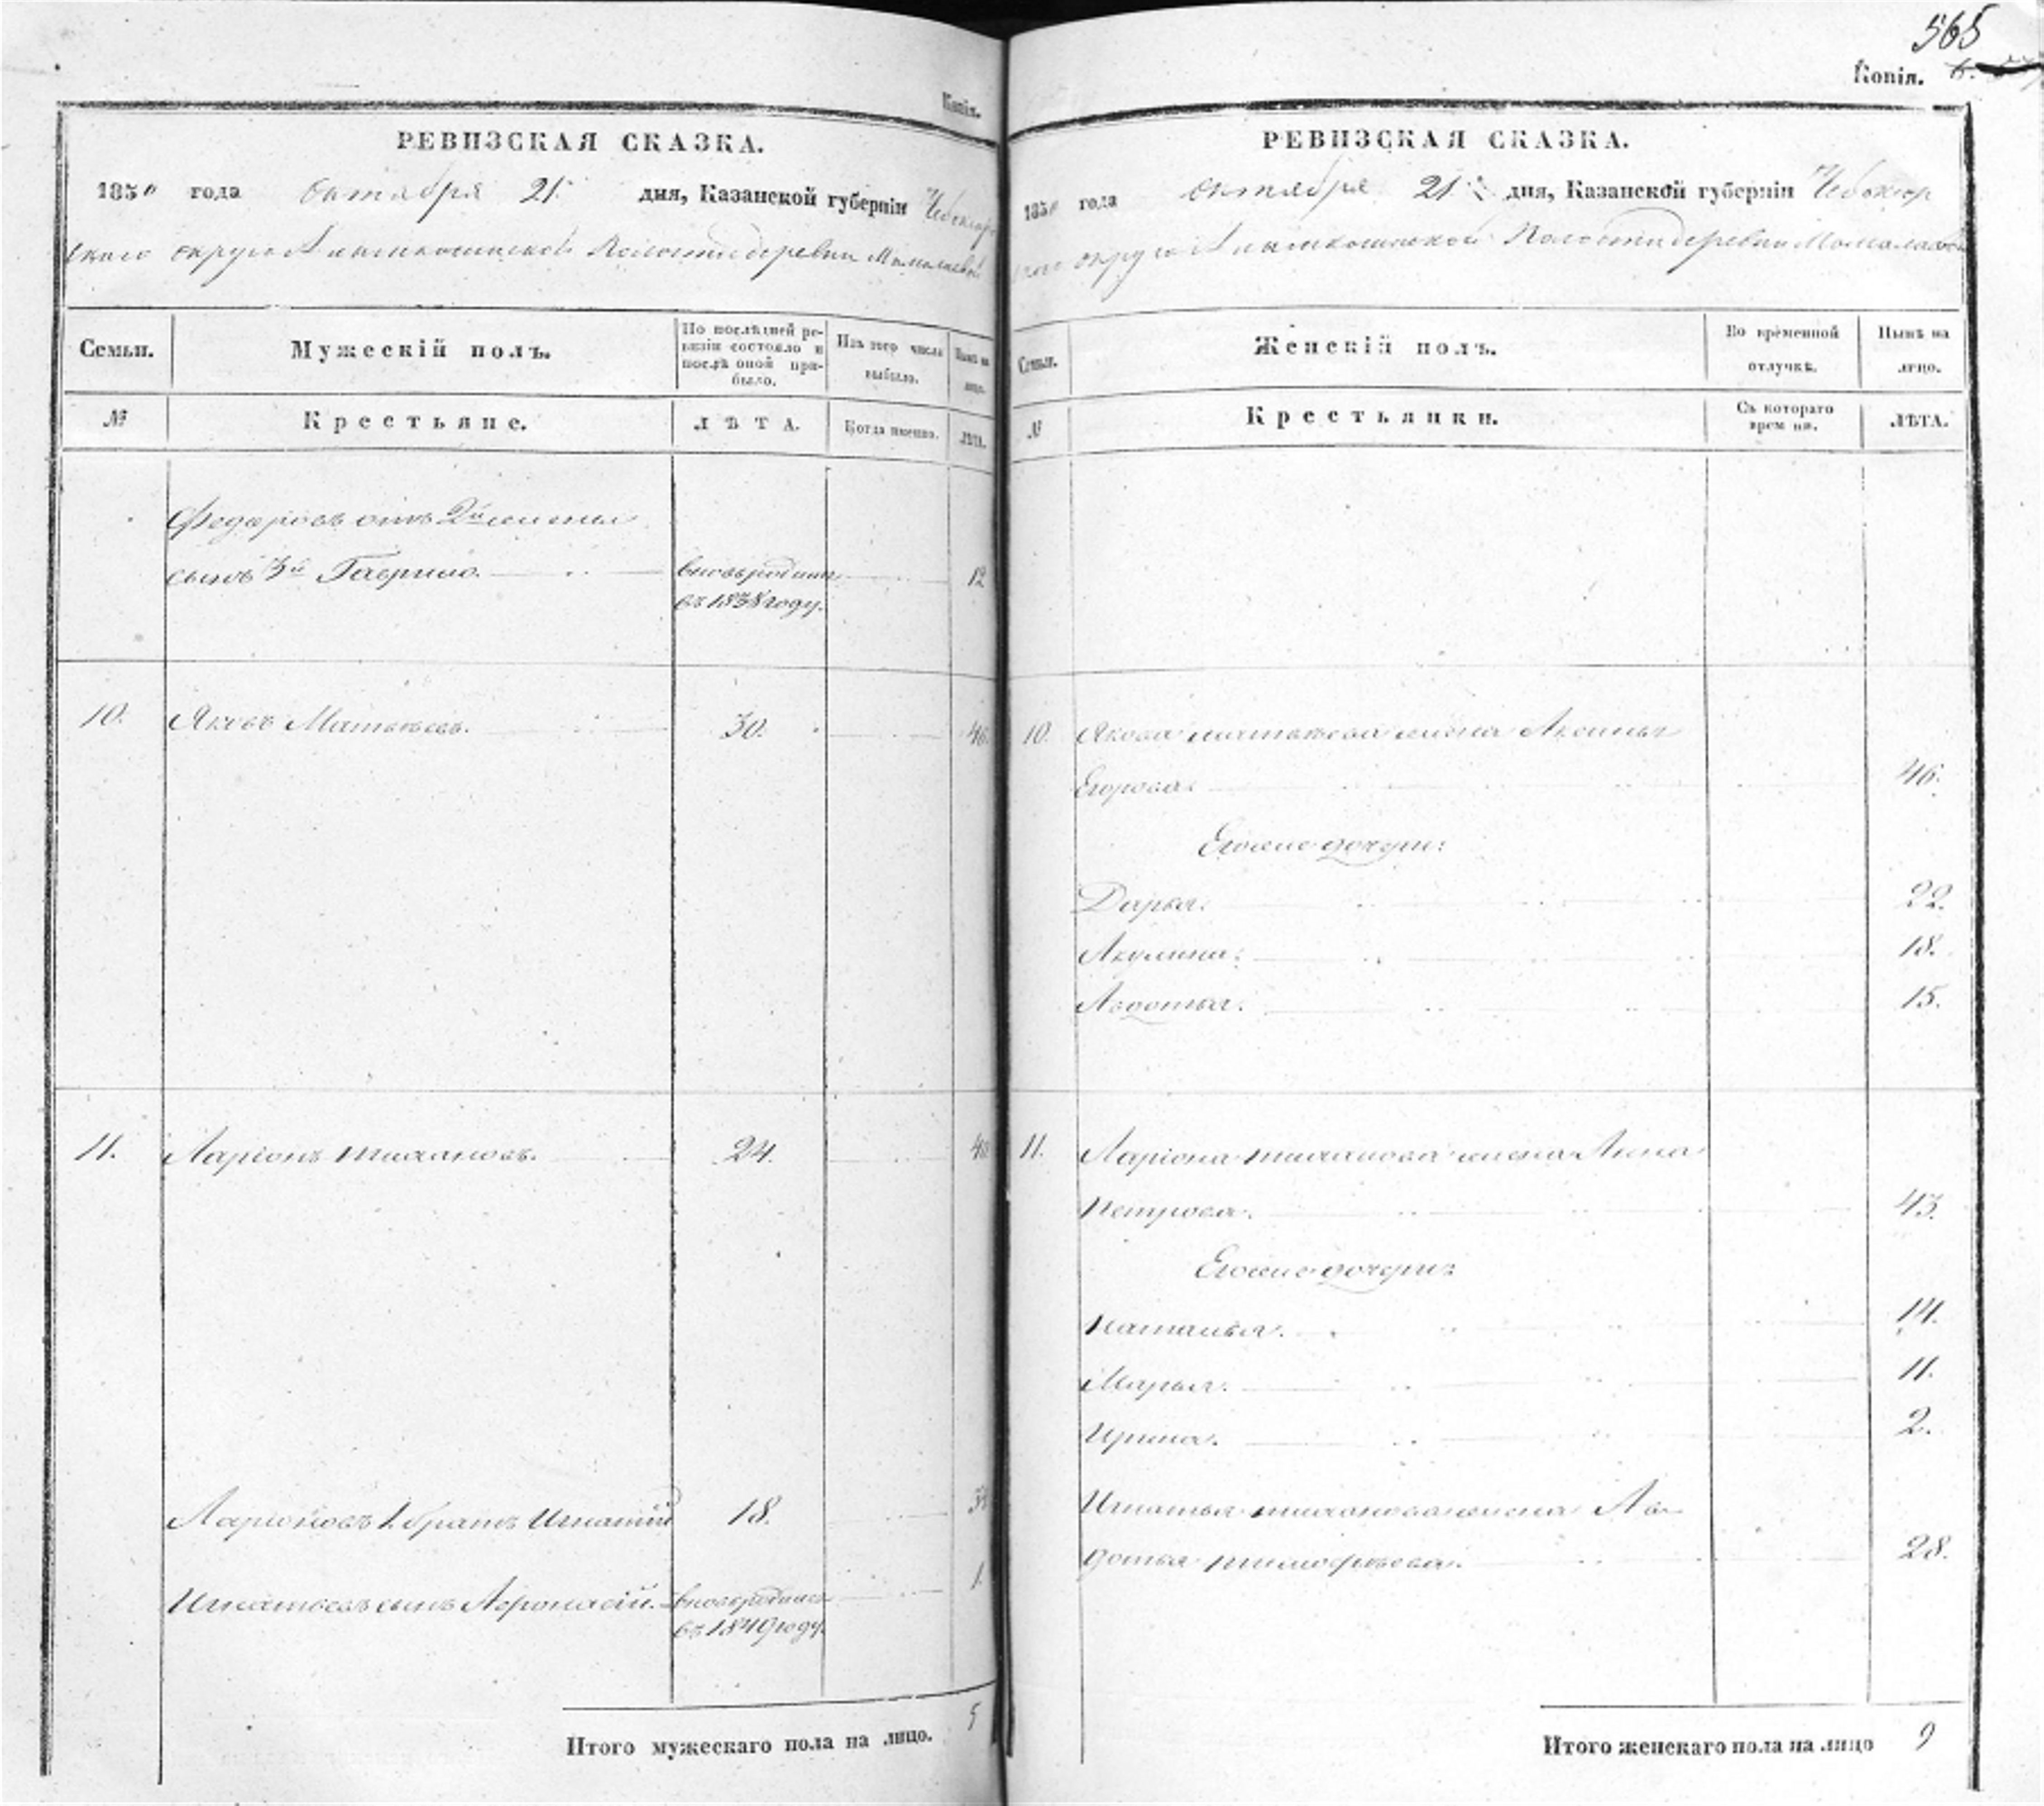 565
Копія.
Копія.
РЕВИЗСКАЯ СКАЗКА.
1850 года октября 21. дня, Казанской губерніи Чебоксар
скаго округа Волости деревни
Семьи.
Мужескій полъ.
По послѣдней ре-
визіи состояло и
послѣ оной при-
было.
Изъ того числа
выбыло.
Нынѣ на
лицо.
№
Крестьяне.
ЛѢТА.
Когда именно.
ЛѢТА.
Федоровъ отъ 2й жены
сынъ 3й Гаврило. 12
вновь рожден
въ 1838 году.
10. Яковъ Матвѣевъ. 30. 46.
11. Ларіонъ 24. 40
Ларіоновъ 1. братъ Игнатій 18. 34
Игнатьевъ сынъ Афонасій. 1.
въ 1849 году.
Итого мужескаго пола на лицо. 5
РЕВИЗСКАЯ СКАЗКА.
1850 года октября 21. дня, Казанской губерніи Чебоксар
скаго округа Волости деревни
Семьи.
Женскій полъ.
Во временной
отлучкѣ.
Нынѣ на
лицо.
№
Крестьянки.
Съ котораго
времени.
ЛѢТА.
10. Якова Матвѣева жена Аксинья
Егорова. 46.
Егоже дочери:
Дарья. 22.
Акулина. 18.
Авдотья. 15.
11. Ларіона жена Анна
Петрова. 43.
Егоже дочери:
Наталья. 14.
Марья. 11.
Ирина. 2.
Игнатья жена Ав-
дотья Тимофѣева. 28.
Итого женскаго пола на лицо 9